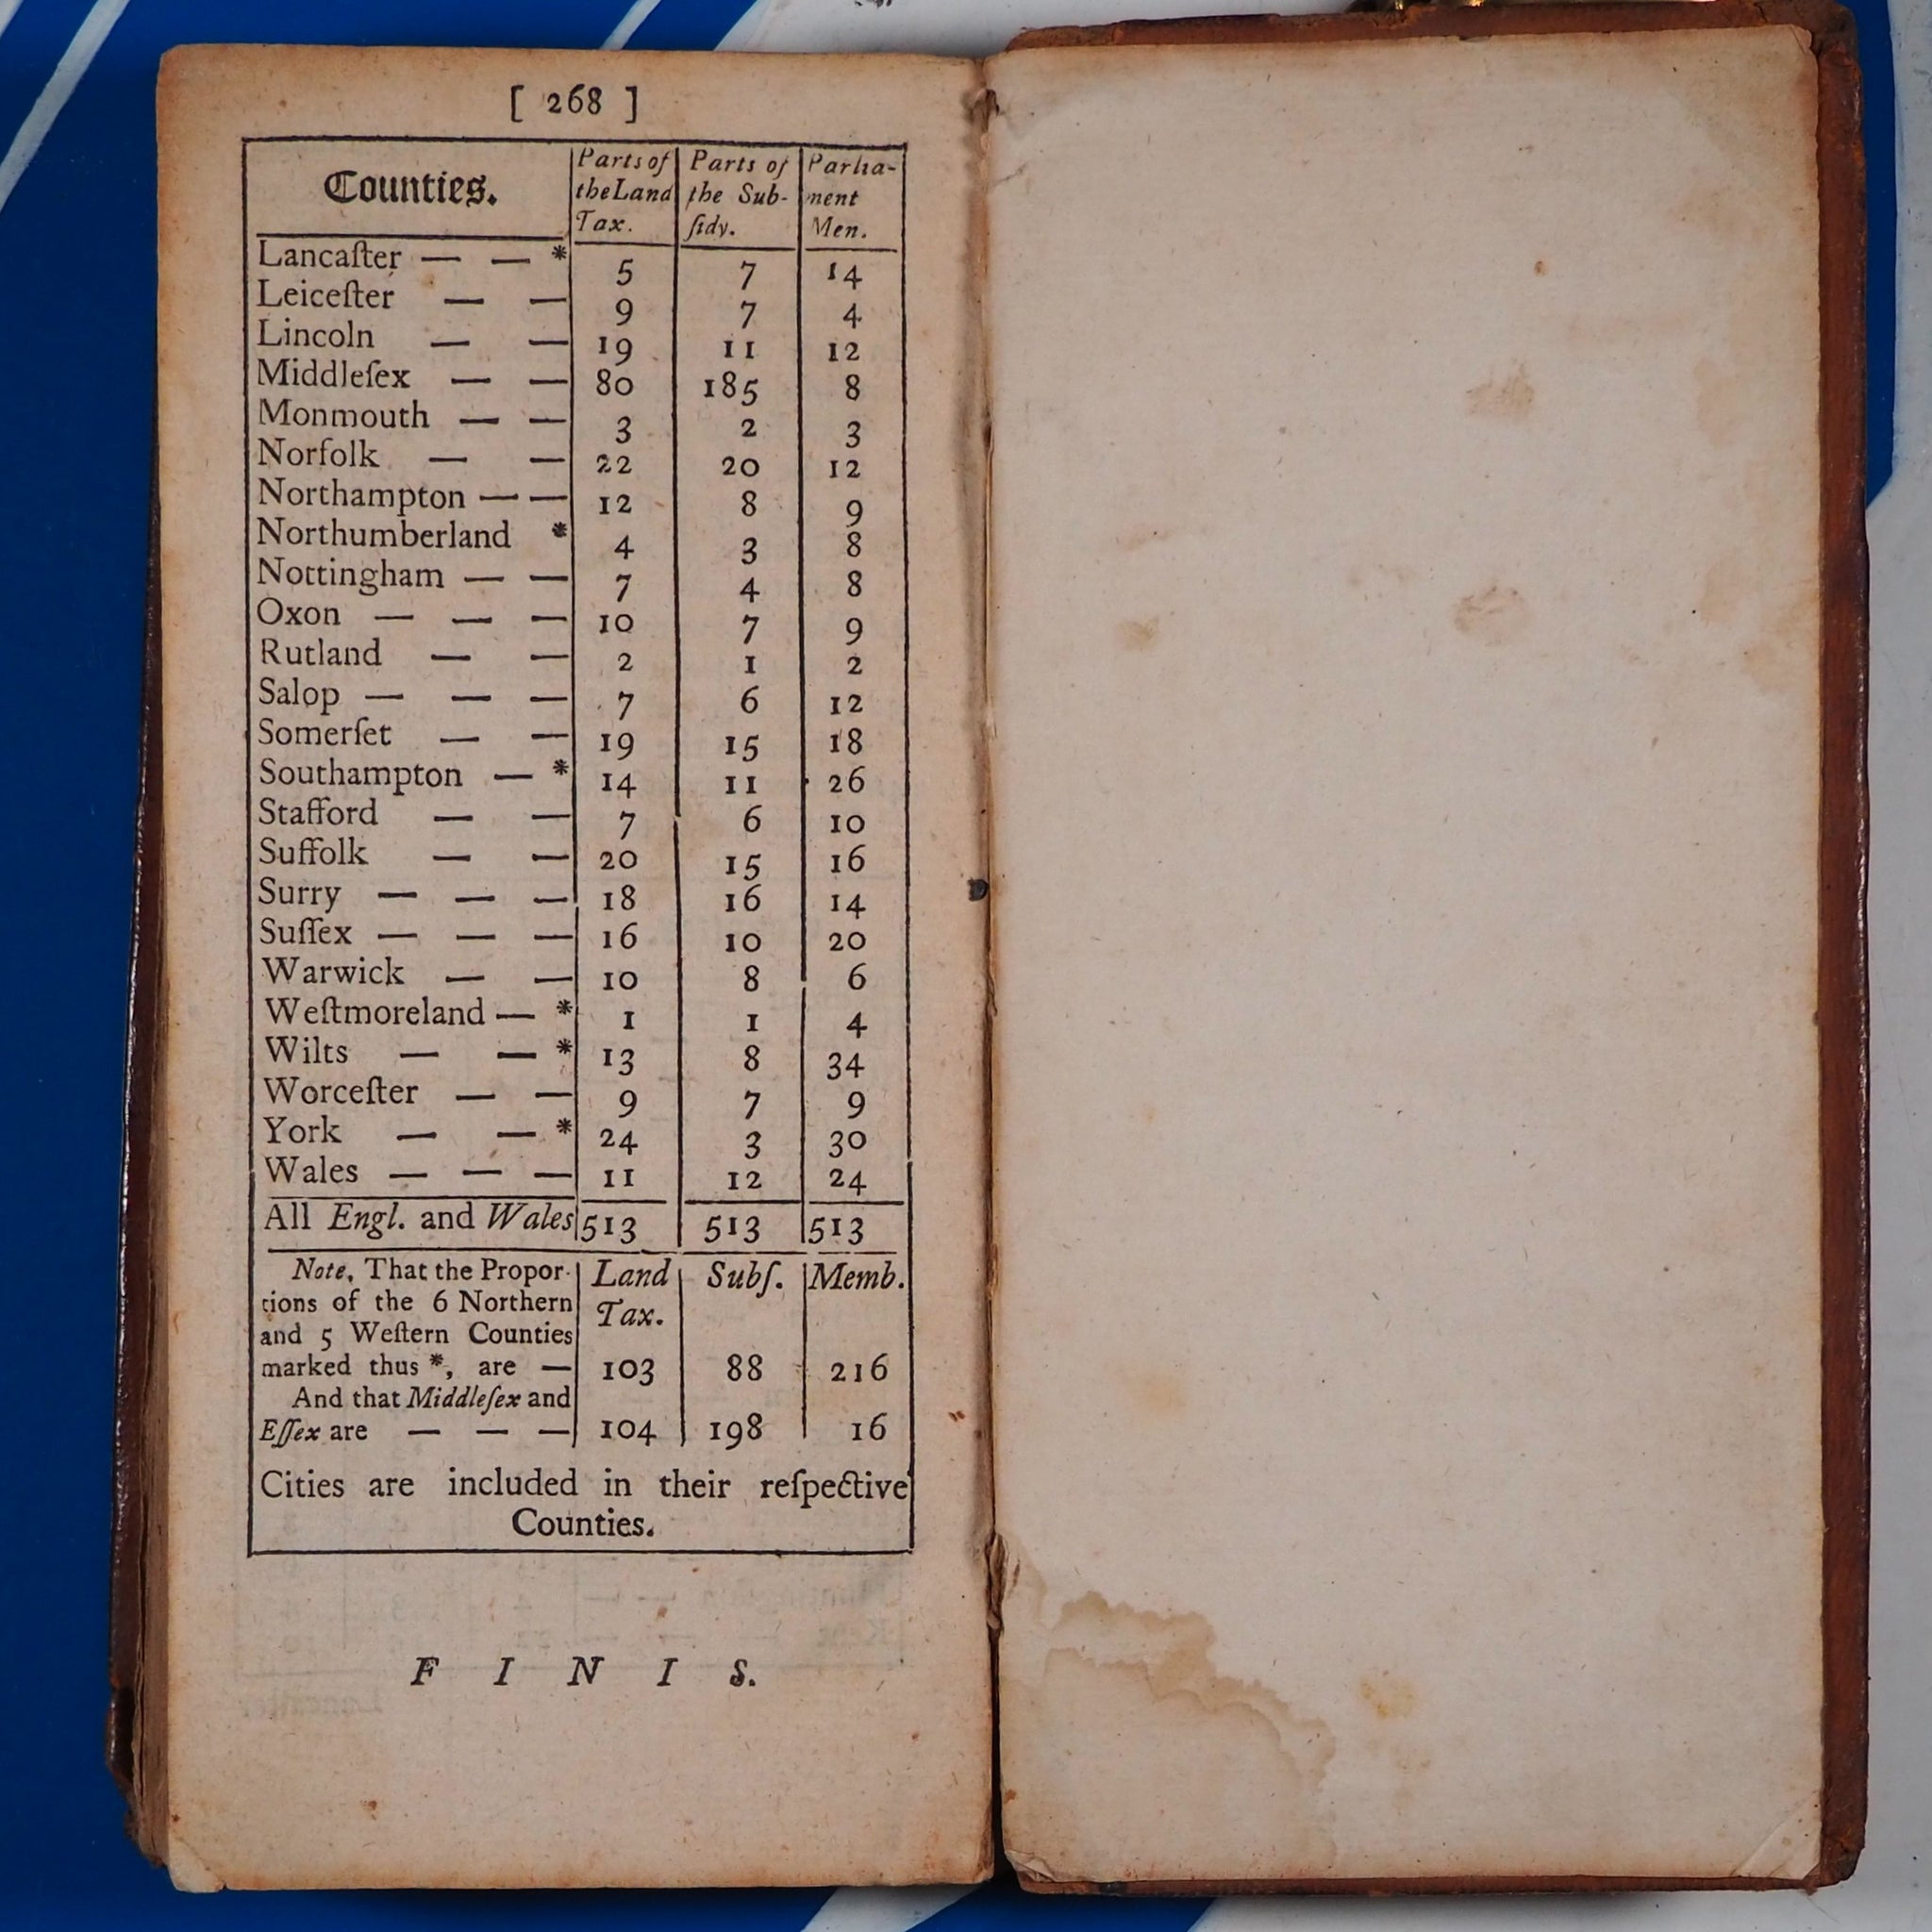 [ 268 ]
Counties. Parts of the Land Tax. Parts of the Sub-ſidy. Parlia-ment Men.
Lancaſter — — * 5 7 14
Leiceſter — — 9 7 4
Lincoln — — 19 11 12
Middleſex — — 80 185 8
Monmouth — — 3 2 3
Norfolk — — 22 20 12
Northampton — — 12 8 9
Northumberland * 4 3 8
Nottingham — — 7 4 8
Oxon — — — 10 7 9
Rutland — — 2 1 2
Salop — — — 7 6 12
Somerſet — — 19 15 18
Southampton — * 14 11 26
Stafford — — 7 6 10
Suffolk — — 20 15 16
Surry — — — 18 16 14
Suſſex — — — 16 10 20
Warwick — — 10 8 6
Weſtmoreland — * 1 1 4
Wilts — — * 13 8 34
Worceſter — — 9 7 9
York — — * 24 3 30
Wales — — — 11 12 24
All Engl. and Wales 513 513 513
Note, That the Propor- Land Subſ. Memb.
tions of the 6 Northern Tax.
and 5 Weſtern Counties
marked thus *, are — 103 88 216
And that Middleſex and
Eſſex are — — — 104 198 16
Cities are included in their reſpective
Counties.
F I N I S.